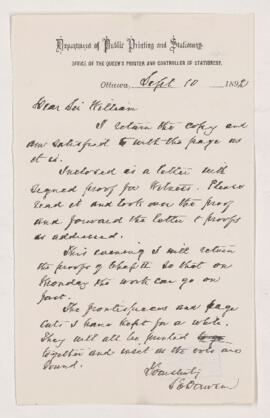 Department of Public Printing and Stationery.
OFFICE OF THE QUEEN'S PRINTER AND CONTROLLER OF STATIONERY.
Ottawa, Sept 10 1892
Dear Sir William
I return the copy and
am satisfied to with the page as
it is.
Inclosed is a letter with
signed proof for Please
read it and look over the proof
and forward the letter & proofs
as addressed.
This evening I will return
the proofs of Chap IX so that on
Monday the work can go on
fast.
The frontispieces and page
cuts I have kept for a while.
They will all be printed
together and inset as the vols are
bound.
S E Dawson